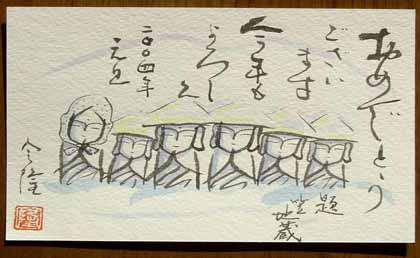 おめでとう
ございます
今年も
よろしく
二〇〇四年
元旦
題
笠地蔵